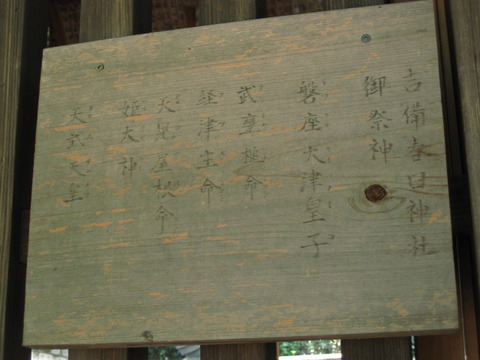 吉備春日神社
御祭神
磐座大津皇子
武甕槌命
経津主命
天児屋根命
姫大神
天武天皇